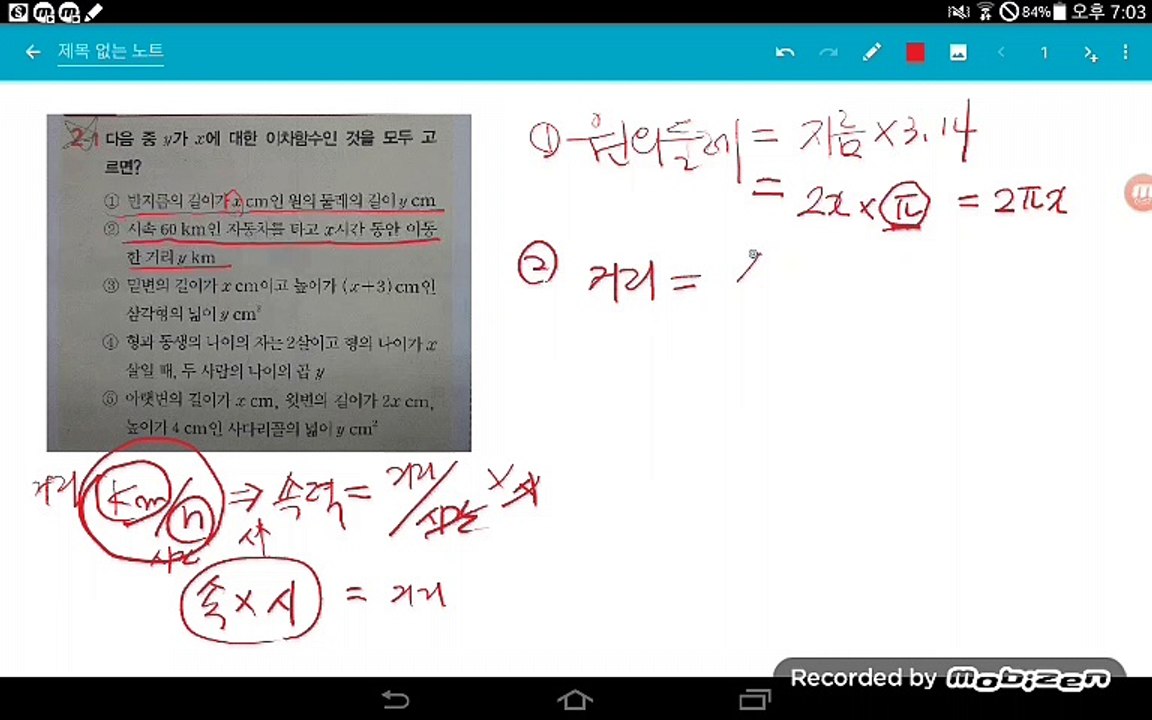 84% 오후 7:03
제목 없는 노트
1
2-1 다음 중 y가 x에 대한 이차함수인 것을 모두 고
르면?
① 반지름의 길이가 x cm인 원의 둘레의 길이 y cm
② 시속 60 km인 자동차를 타고 x시간 동안 이동
한 거리 y km
③ 밑변의 길이가 x cm이고 높이가 (x+3) cm인
삼각형의 넓이 y cm²
④ 형과 동생의 나이의 차는 2살이고 형의 나이가 x
살일 때, 두 사람의 나이의 곱 y
⑤ 아랫변의 길이가 x cm, 윗변의 길이가 2x cm,
높이가 4 cm인 사다리꼴의 넓이 y cm²
① 원의 둘레 = 지름 × 3.14
= 2x × π = 2πx
② 거리 =
거리 km/h ⇒ 속력 = 거리/시간 × 시
시간
속 × 시 = 거리
Recorded by mobizen